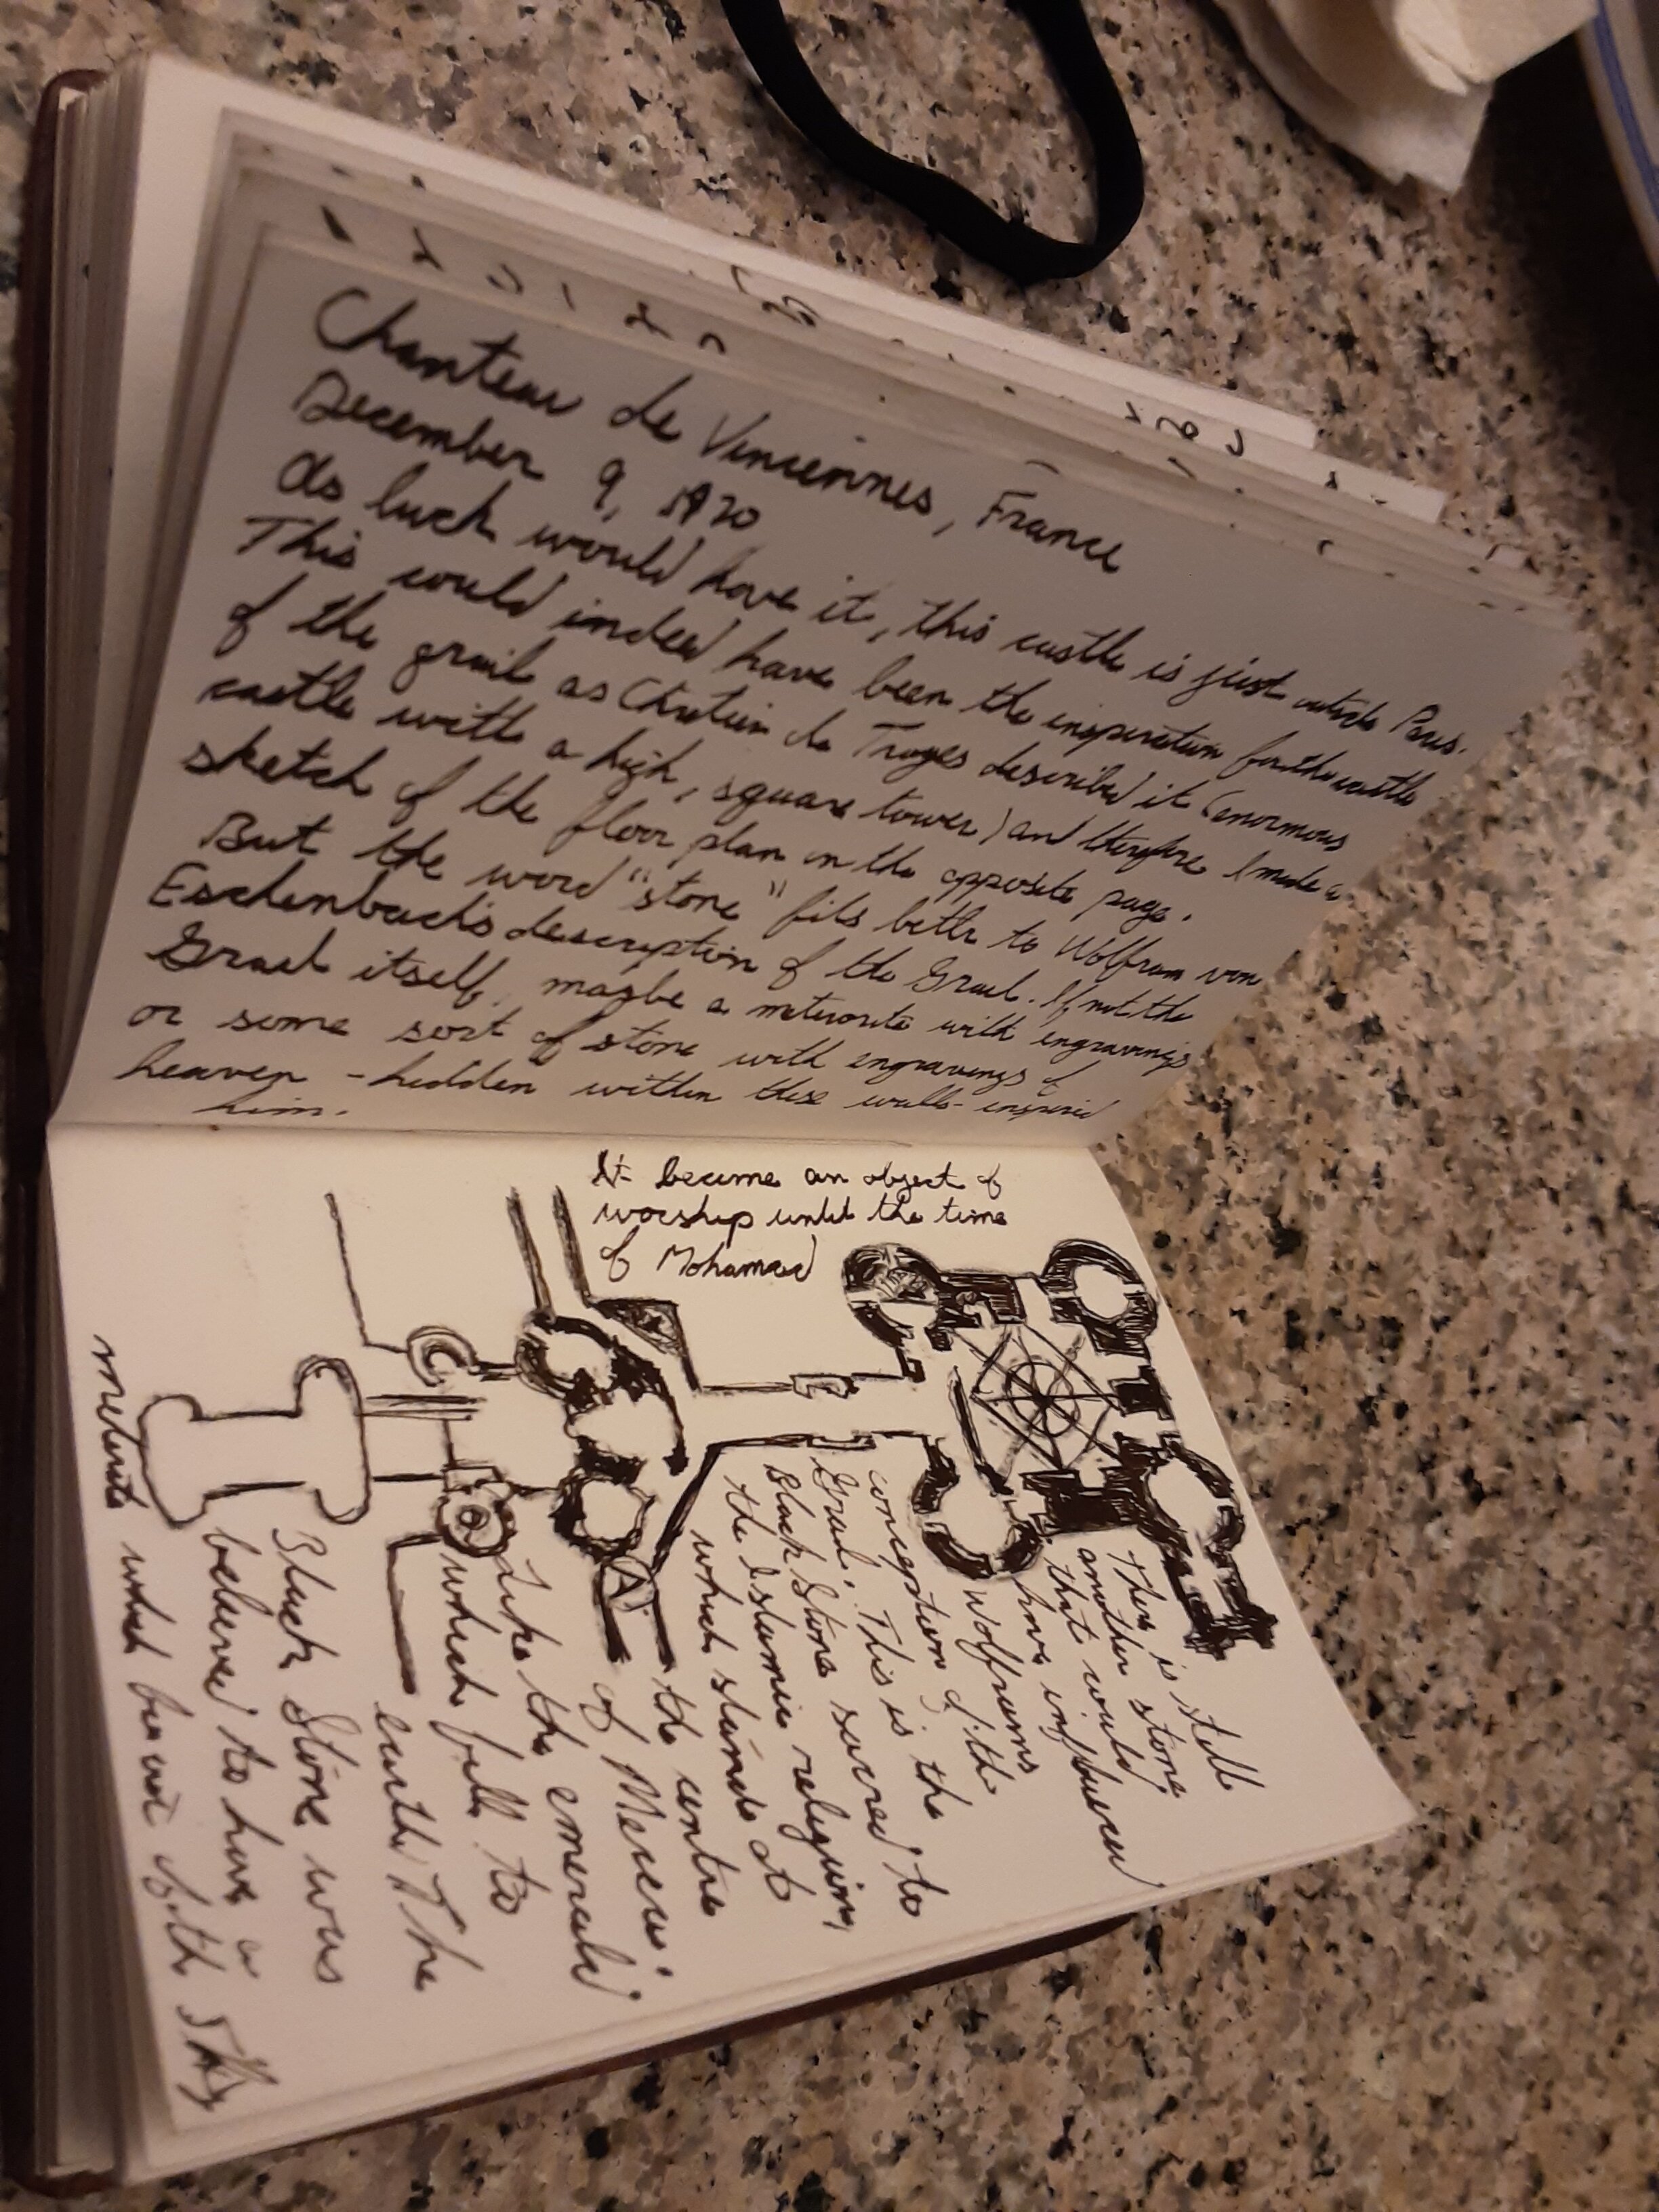 Chanteau de Vincennes, France
December 9, 1920
As luck would have it, this castle is just outside Paris.
This could indeed have been the inspiration for the castle
of the grail as Chretien de Troyes described it (enormous
castle with a high, square tower) and therefore I made a
sketch of the floor plan on the opposite page.
But the word "stone" fits bettr to Wolfram von
Eschenbach's description of the Grael. If not the
Grael itself, maybe a meteorite with engravings
or some sort of stone with engravings of
heaven - hidden within these walls - inspired
him.
It became an object of
worship until the time
of Mohamaed
Ther is still
another stone
that would
have influenced
Wolframs
conception of the
Grail. This is the
Black Stone sacred to
the Islamic
which stands at
the centre
of Mecca.
Like the emerald
which fell to
earth. The
Black Stone was
believed to have a
meteorite which of the sky
A